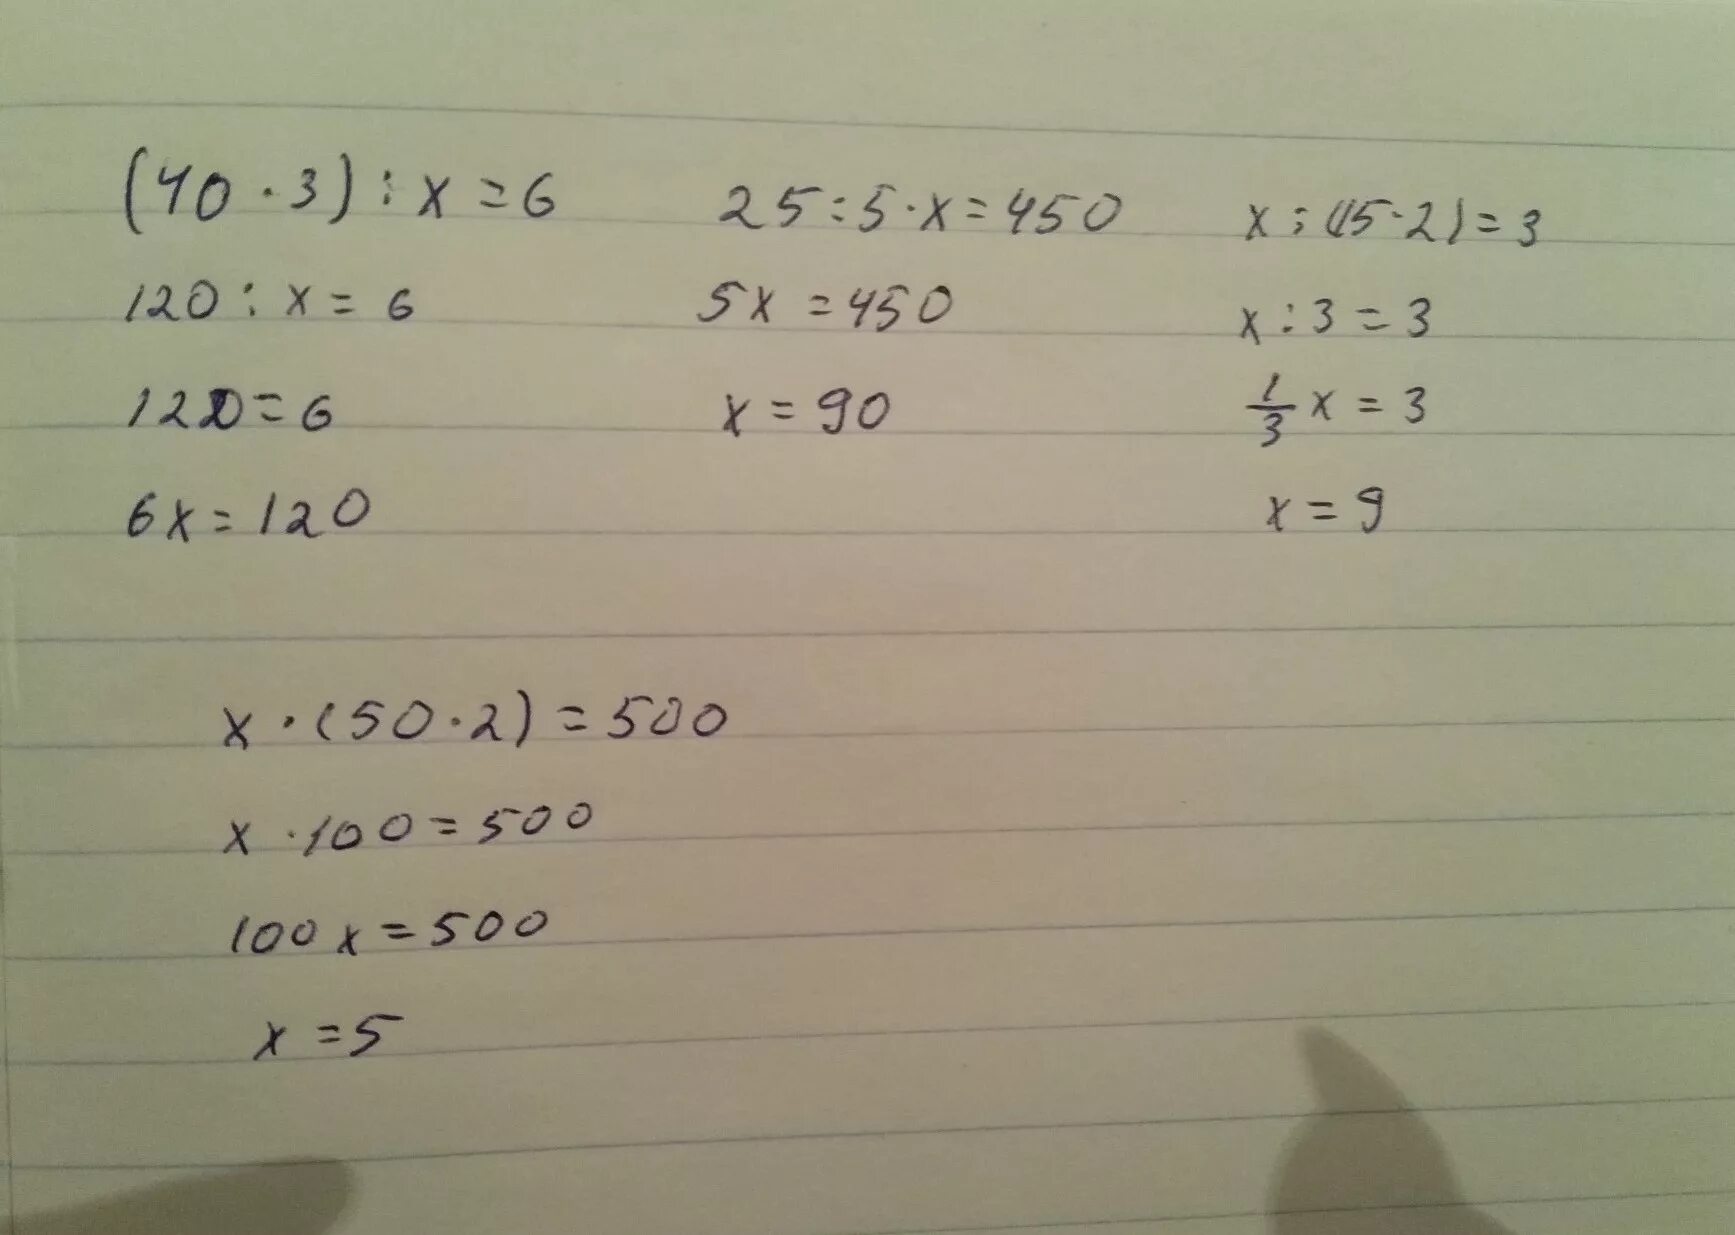 (40 · 3) : x = 6
120 : x = 6
120 = 6
6x = 120
25 : 5 · x = 450
5x = 450
x = 90
x : (15 · 2) = 3
x : 3 = 3
1/3 x = 3
x = 9
x · (50 · 2) = 500
x · 100 = 500
100x = 500
x = 5